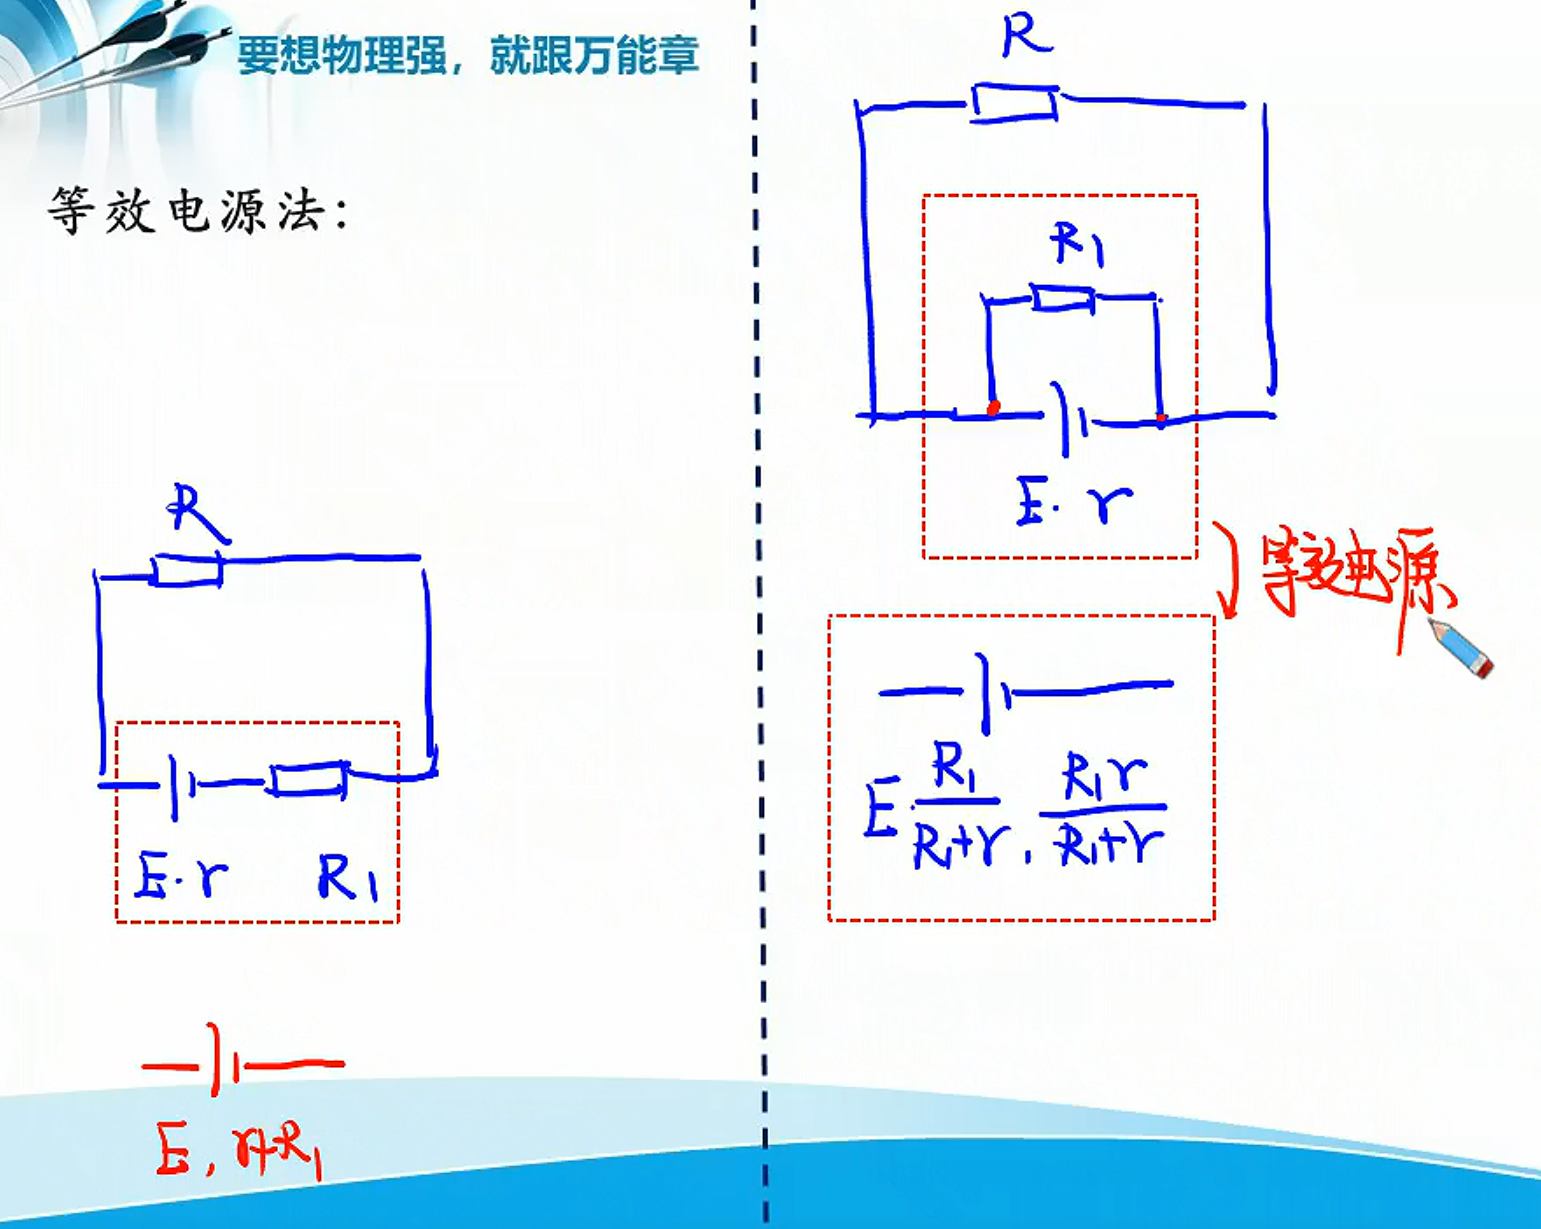 要想物理强，就跟万能章
等效电源法：
R
E. r R₁
E, r+R₁
R
R₁
E. r
等效电源
E· R₁/(R₁+r), R₁r/(R₁+r)